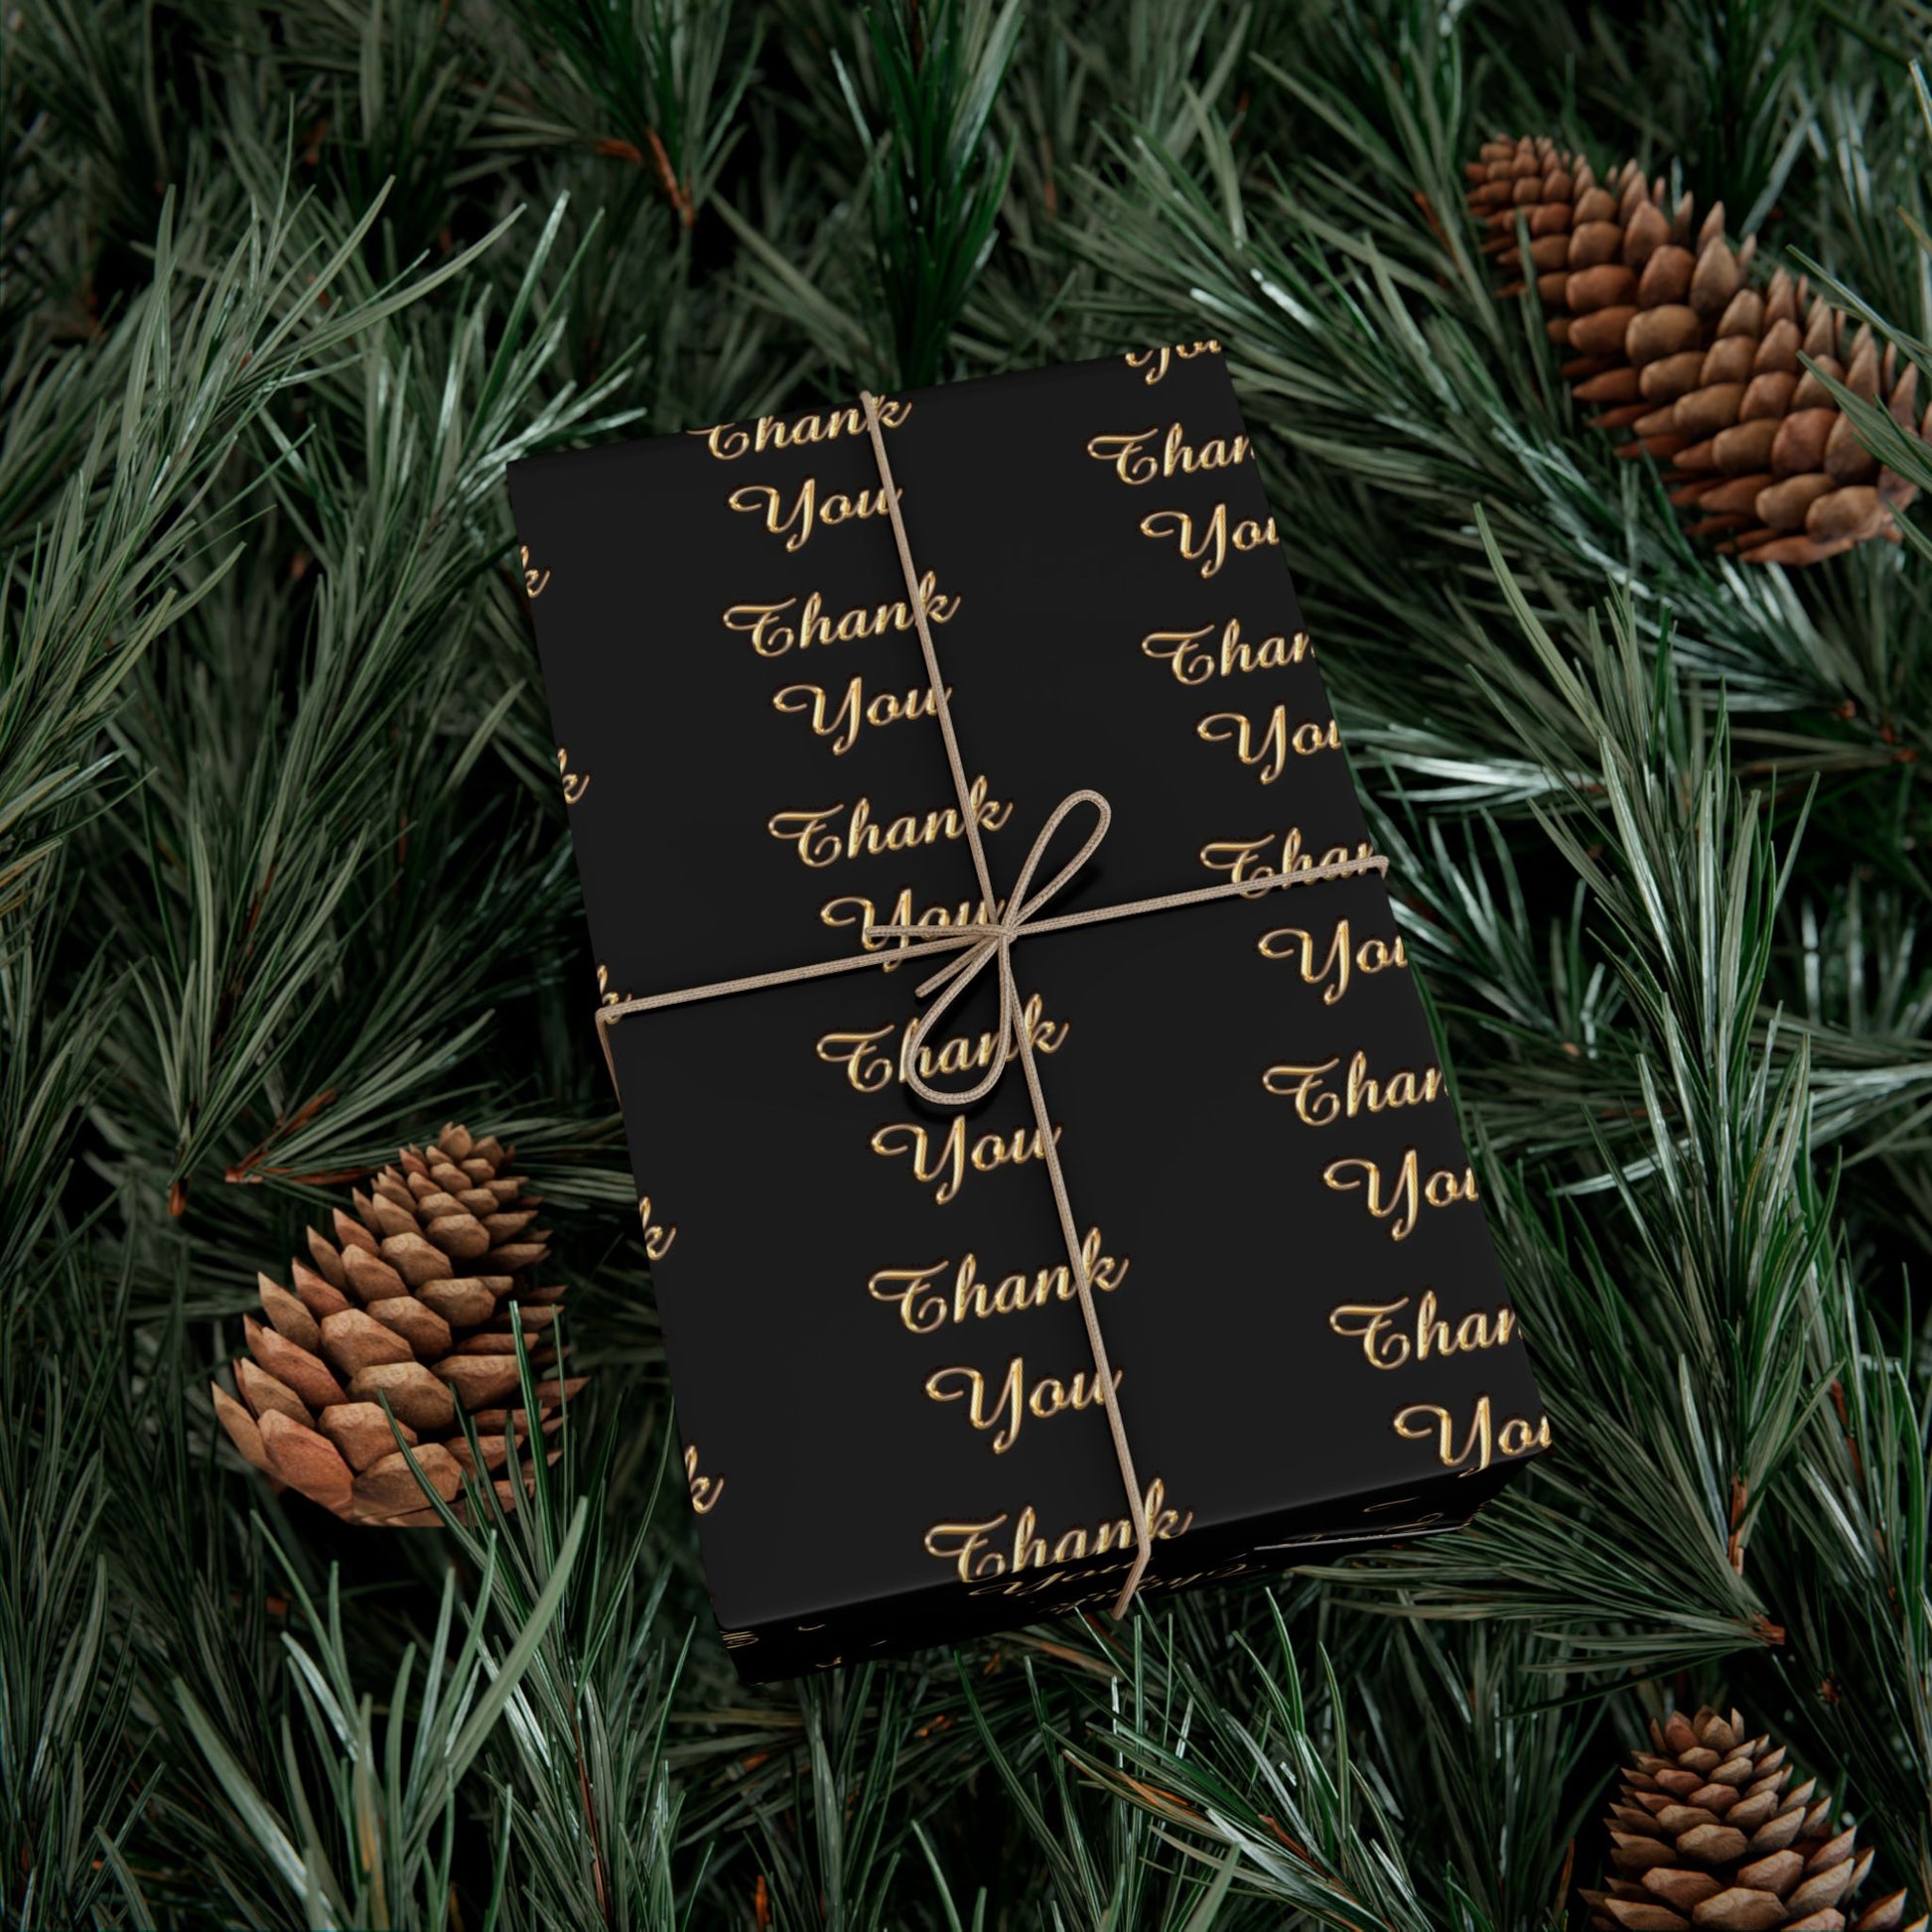 Thank
You
Thank
You
Thank
You
Thank
You
Thank
You
Thank
You
Than
You
Than
You
Than
You
Than
You
Than
You
k
k
k
k
k